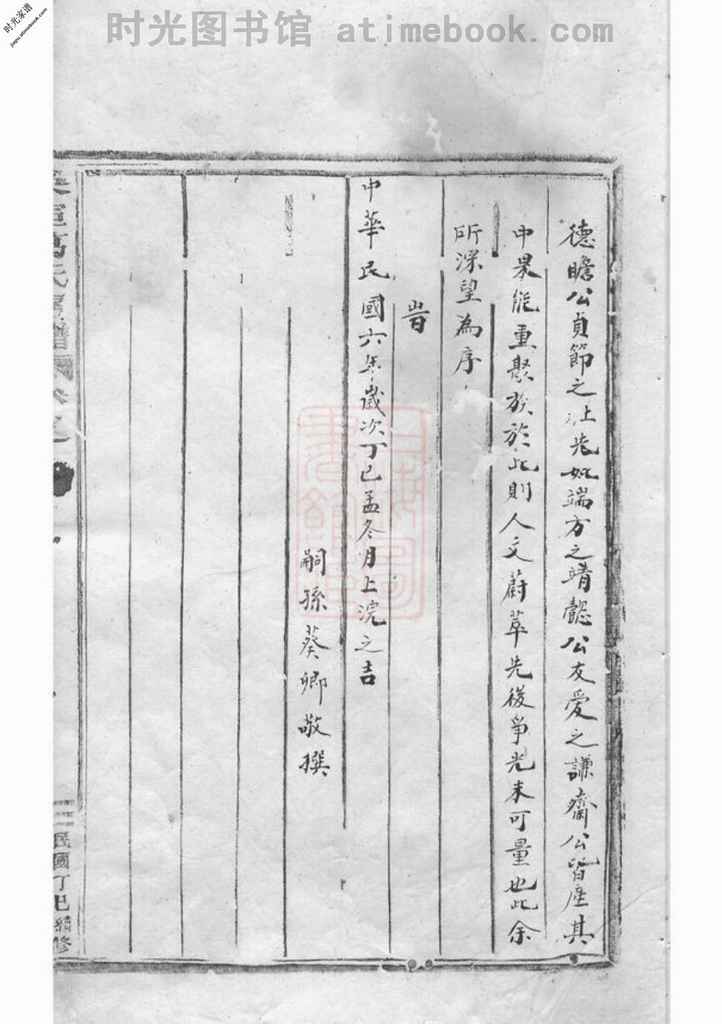 时光图书馆 atimebook.com
时光家谱
jiapu.atimebook.com
德瞻公貞節之 先如端方之靖懿公友愛之謙齋公皆産其
中果能重聚族於此則人文蔚萃先後爭光未可量也此余
所深望為序
旹
中華民國六年歲次丁巳孟冬月上浣之吉
嗣孫葵卿敬撰
氏 譜
民國丁巳續修